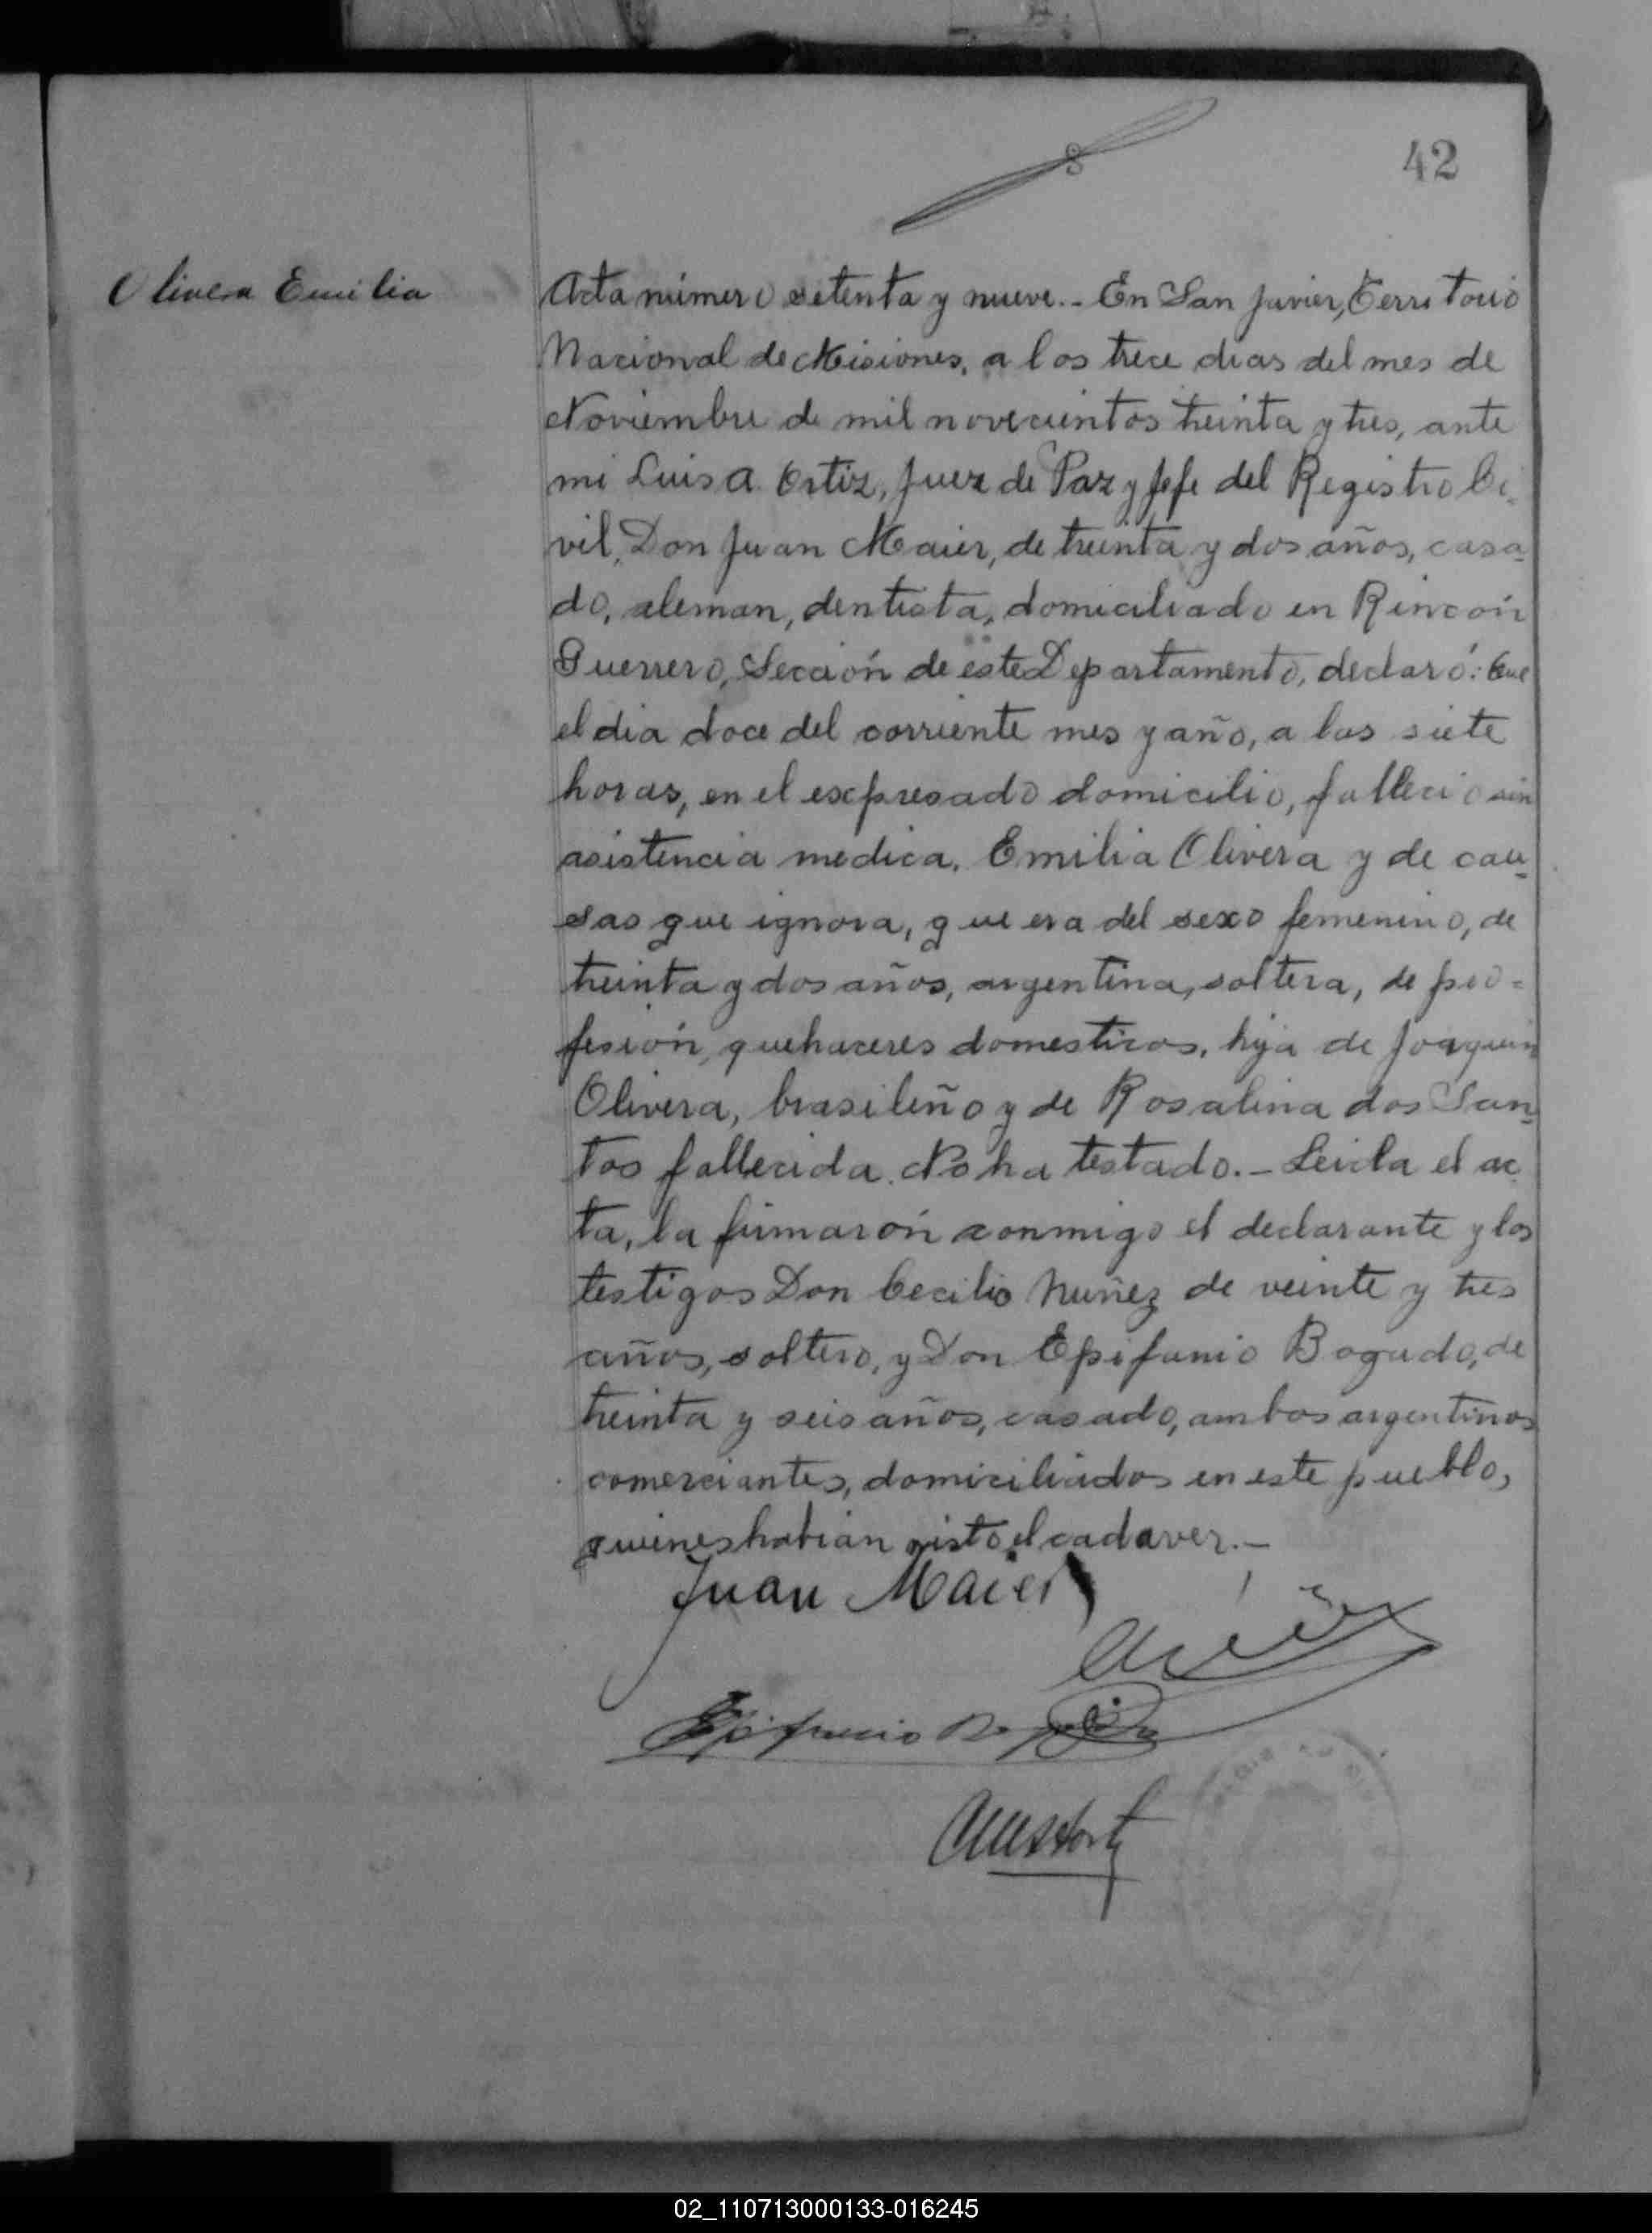 42
Olivera Emilia
Acta número setenta y nueve.- En San Javier, Territorio
Nacional de Misiones, a los trece dias del mes de
Noviembre de mil novecientos treinta y tres, ante
mi Luis A. Ortiz, Juez de Paz y Jefe del Registro Ci-
vil, Don Juan Maier, de treinta y dos años, casa-
do, aleman, dentista, domiciliado en Rincón
Guerrero, Sección de este Departamento, declaró: Que
el dia doce del corriente mes y año, a las siete
horas, en el expresado domicilio, fallecio sin
asistencia medica, Emilia Olivera y de cau-
sas que ignora, que era del sexo femenino, de
treinta y dos años, argentina, soltera, de pro-
fesión, quehaceres domesticos, hija de Joaquin
Olivera, brasileño y de Rosalina dos San-
tos fallecida. No ha testado.- Leida el ac-
ta, la firmarón conmigo el declarante y los
testigos Don Cecilio Nuñez de veinte y tres
años, soltero, y Don Epifanio Bogado, de
treinta y seis años, casado, ambos argentinos
comerciantes, domiciliados en este pueblo,
quienes habian visto el cadaver.-
Juan Maier
Epifanio
02_110713000133-016245